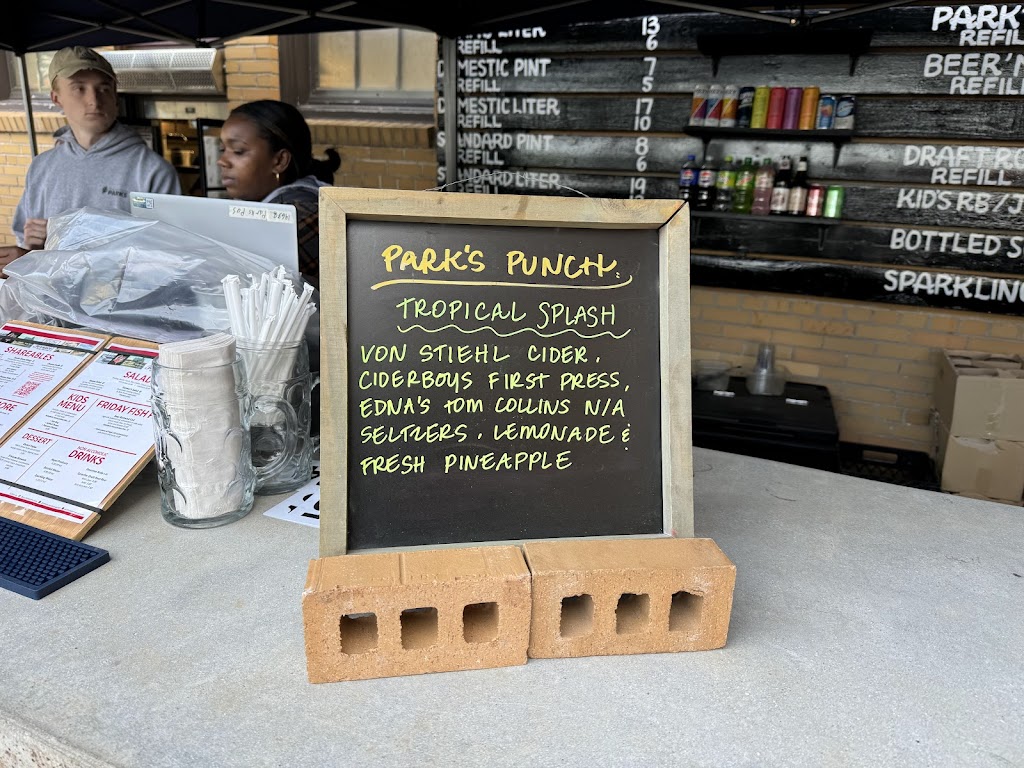 PARK'S PUNCH
TROPICAL SPLASH
VON STIEHL CIDER,
CIDERBOYS FIRST PRESS,
EDNA'S TOM COLLINS N/A
SELTZERS, LEMONADE &
FRESH PINEAPPLE
LITER 13
REFILL 6
MESTIC PINT 7
REFILL 5
MESTIC LITER 17
REFILL 10
NDARD PINT 8
REFILL 6
NDARD LITER 19
PARK'S
REFIL
BEER 'N
REFILL
DRAFT RO
REFILL
KID'S RB / J
BOTTLED S
SPARKLING
SHAREABLES
SALA
KIDS
MENU
FRIDAY FISH
ORE
DESSERT
DRINKS
PARKS